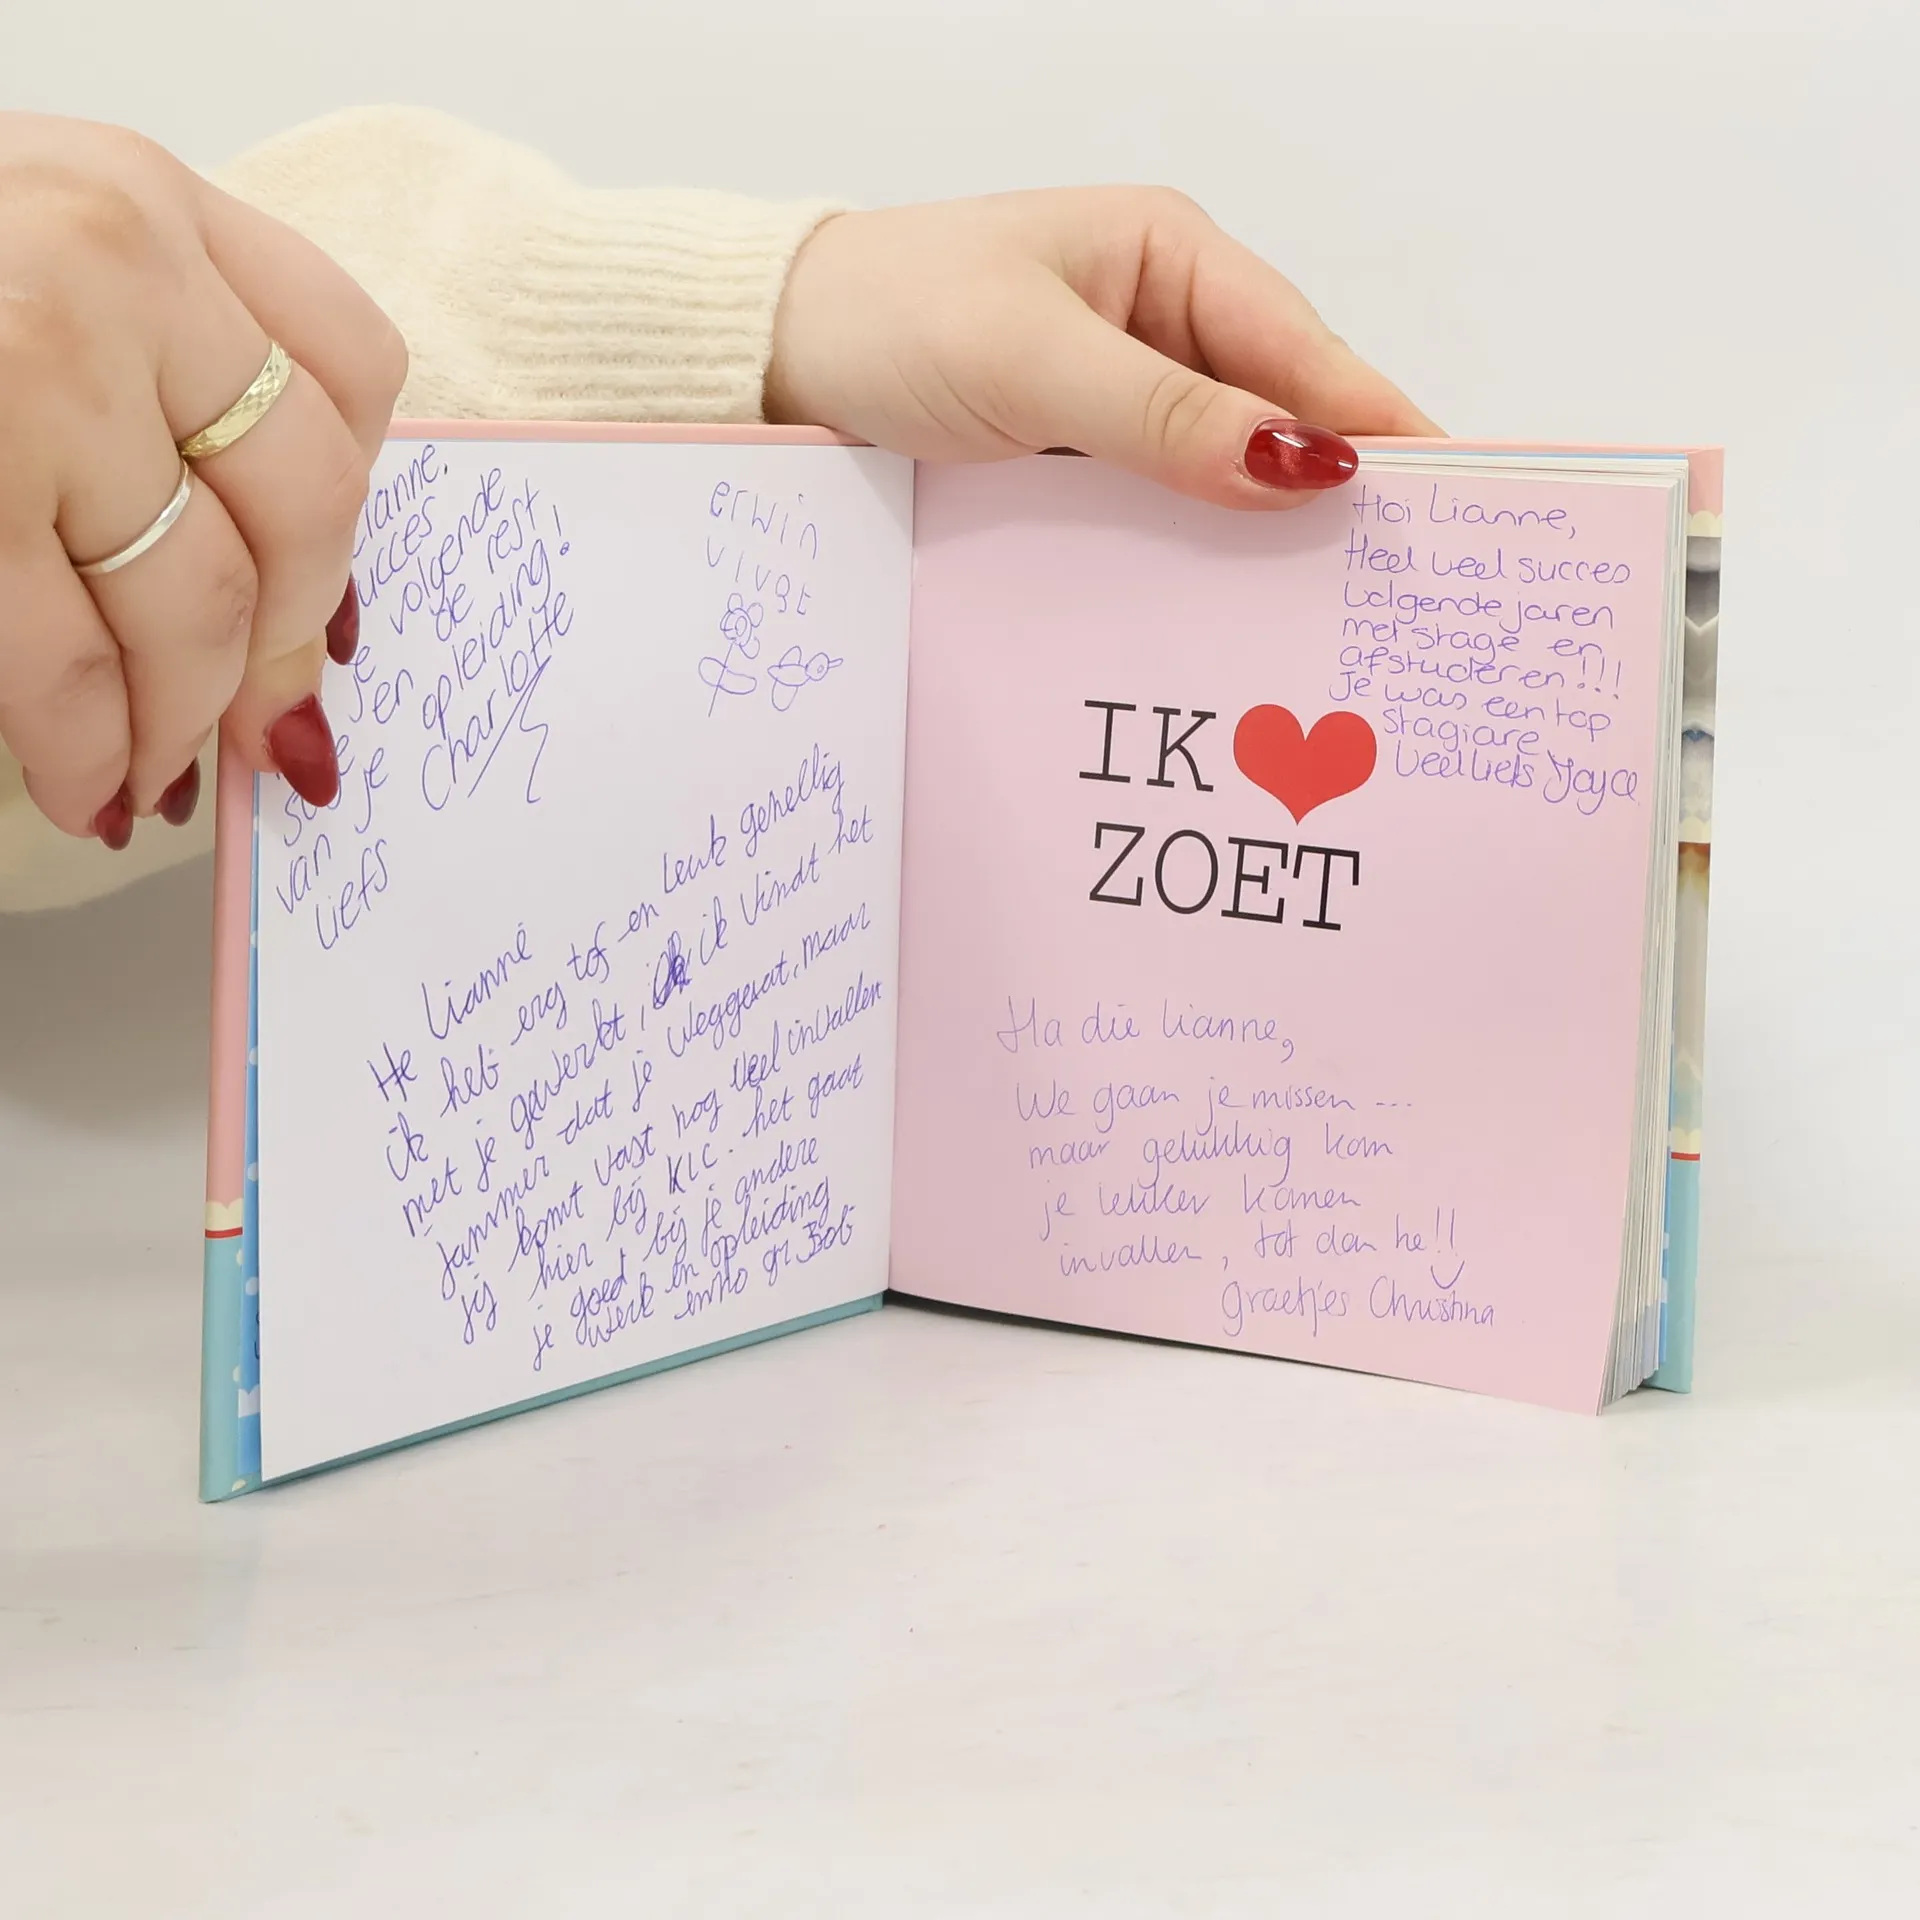 Lianne.
succes
je volgende
en de rest
van je opleiding!
liefs Charlotte
erwin
vlugt
He Lianne
ik heb erg tof en leuk gezellig
met je gewerkt, ik vindt het
jammer dat je weggaat, maar
jij komt vast nog veel invallen
hier bij KLC. het gaat
je goed bij je andere
werk en opleiding
gr Bob
Hoi Lianne,
Heel veel succes
volgende jaren
met stage en
afstuderen!!!
Je was een top
stagiare
Veel liefs Joyce
IK ♥
ZOET
Ha die Lianne,
We gaan je missen ---
maar gelukkig kom
je lekker komen
invallen, tot dan he!!
groetjes Christina